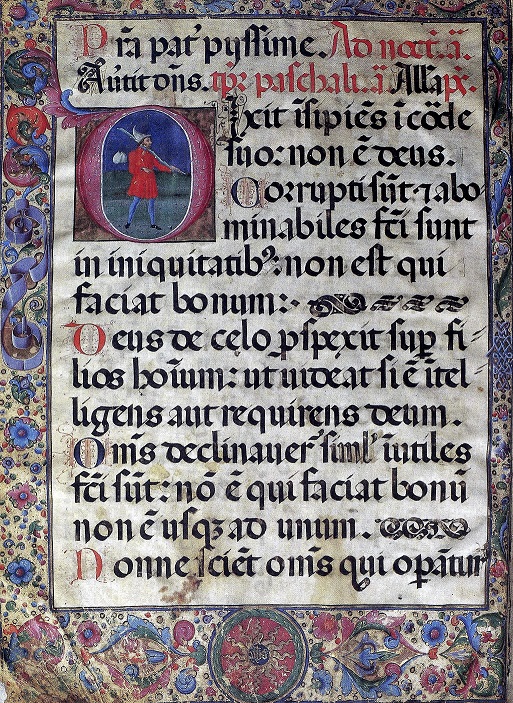 Pr̄a pat' pyssime. Ad noct̄. ā.
Avtit dn̄s. tp̄r paschali. ā Alla p̄x.
Dixit īsipiēs ī cōde
suo: non ē deus.
Corrupti sūt: ⁊ abo
minabiles fc̄i sunt
in iniquitatibꝰ: non est qui
faciat bonum:
Deus de celo ꝓspexit suꝑ fi
lios hoīum: ut uideat si ē ītel
ligens aut requirens deum.
Om̄s declinauer̄ siml' īutiles
fc̄i sūt: nō ē qui faciat bonū
non ē usqꝫ ad unum.
Nonne sciēt om̄s qui oꝑātur